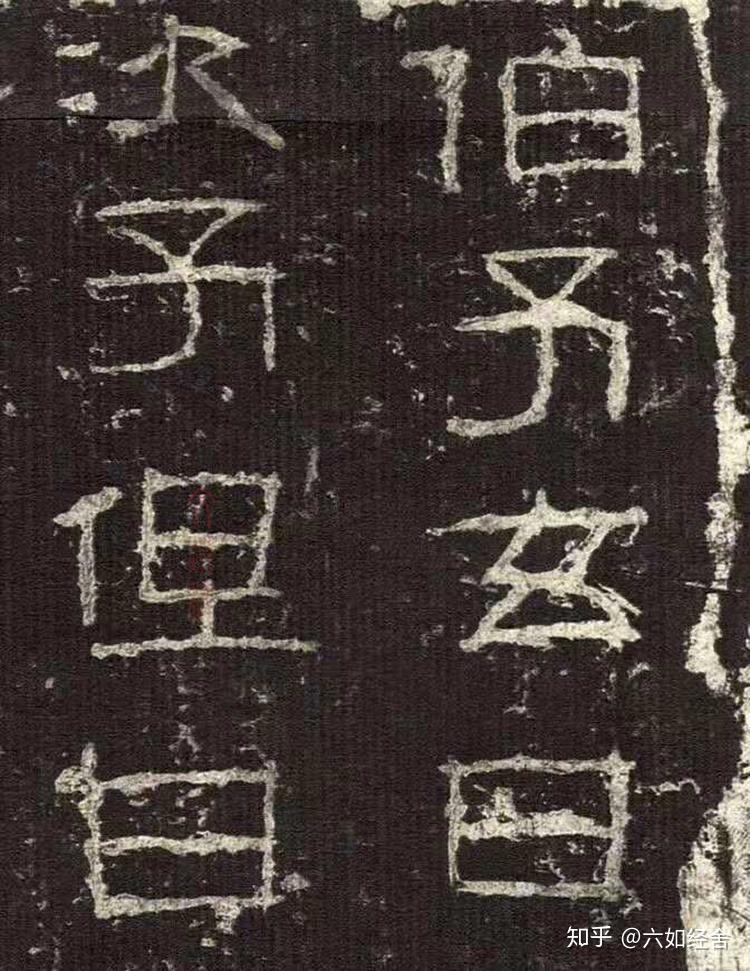 伯子玄曰
次子但曰
知乎 @六如经舍